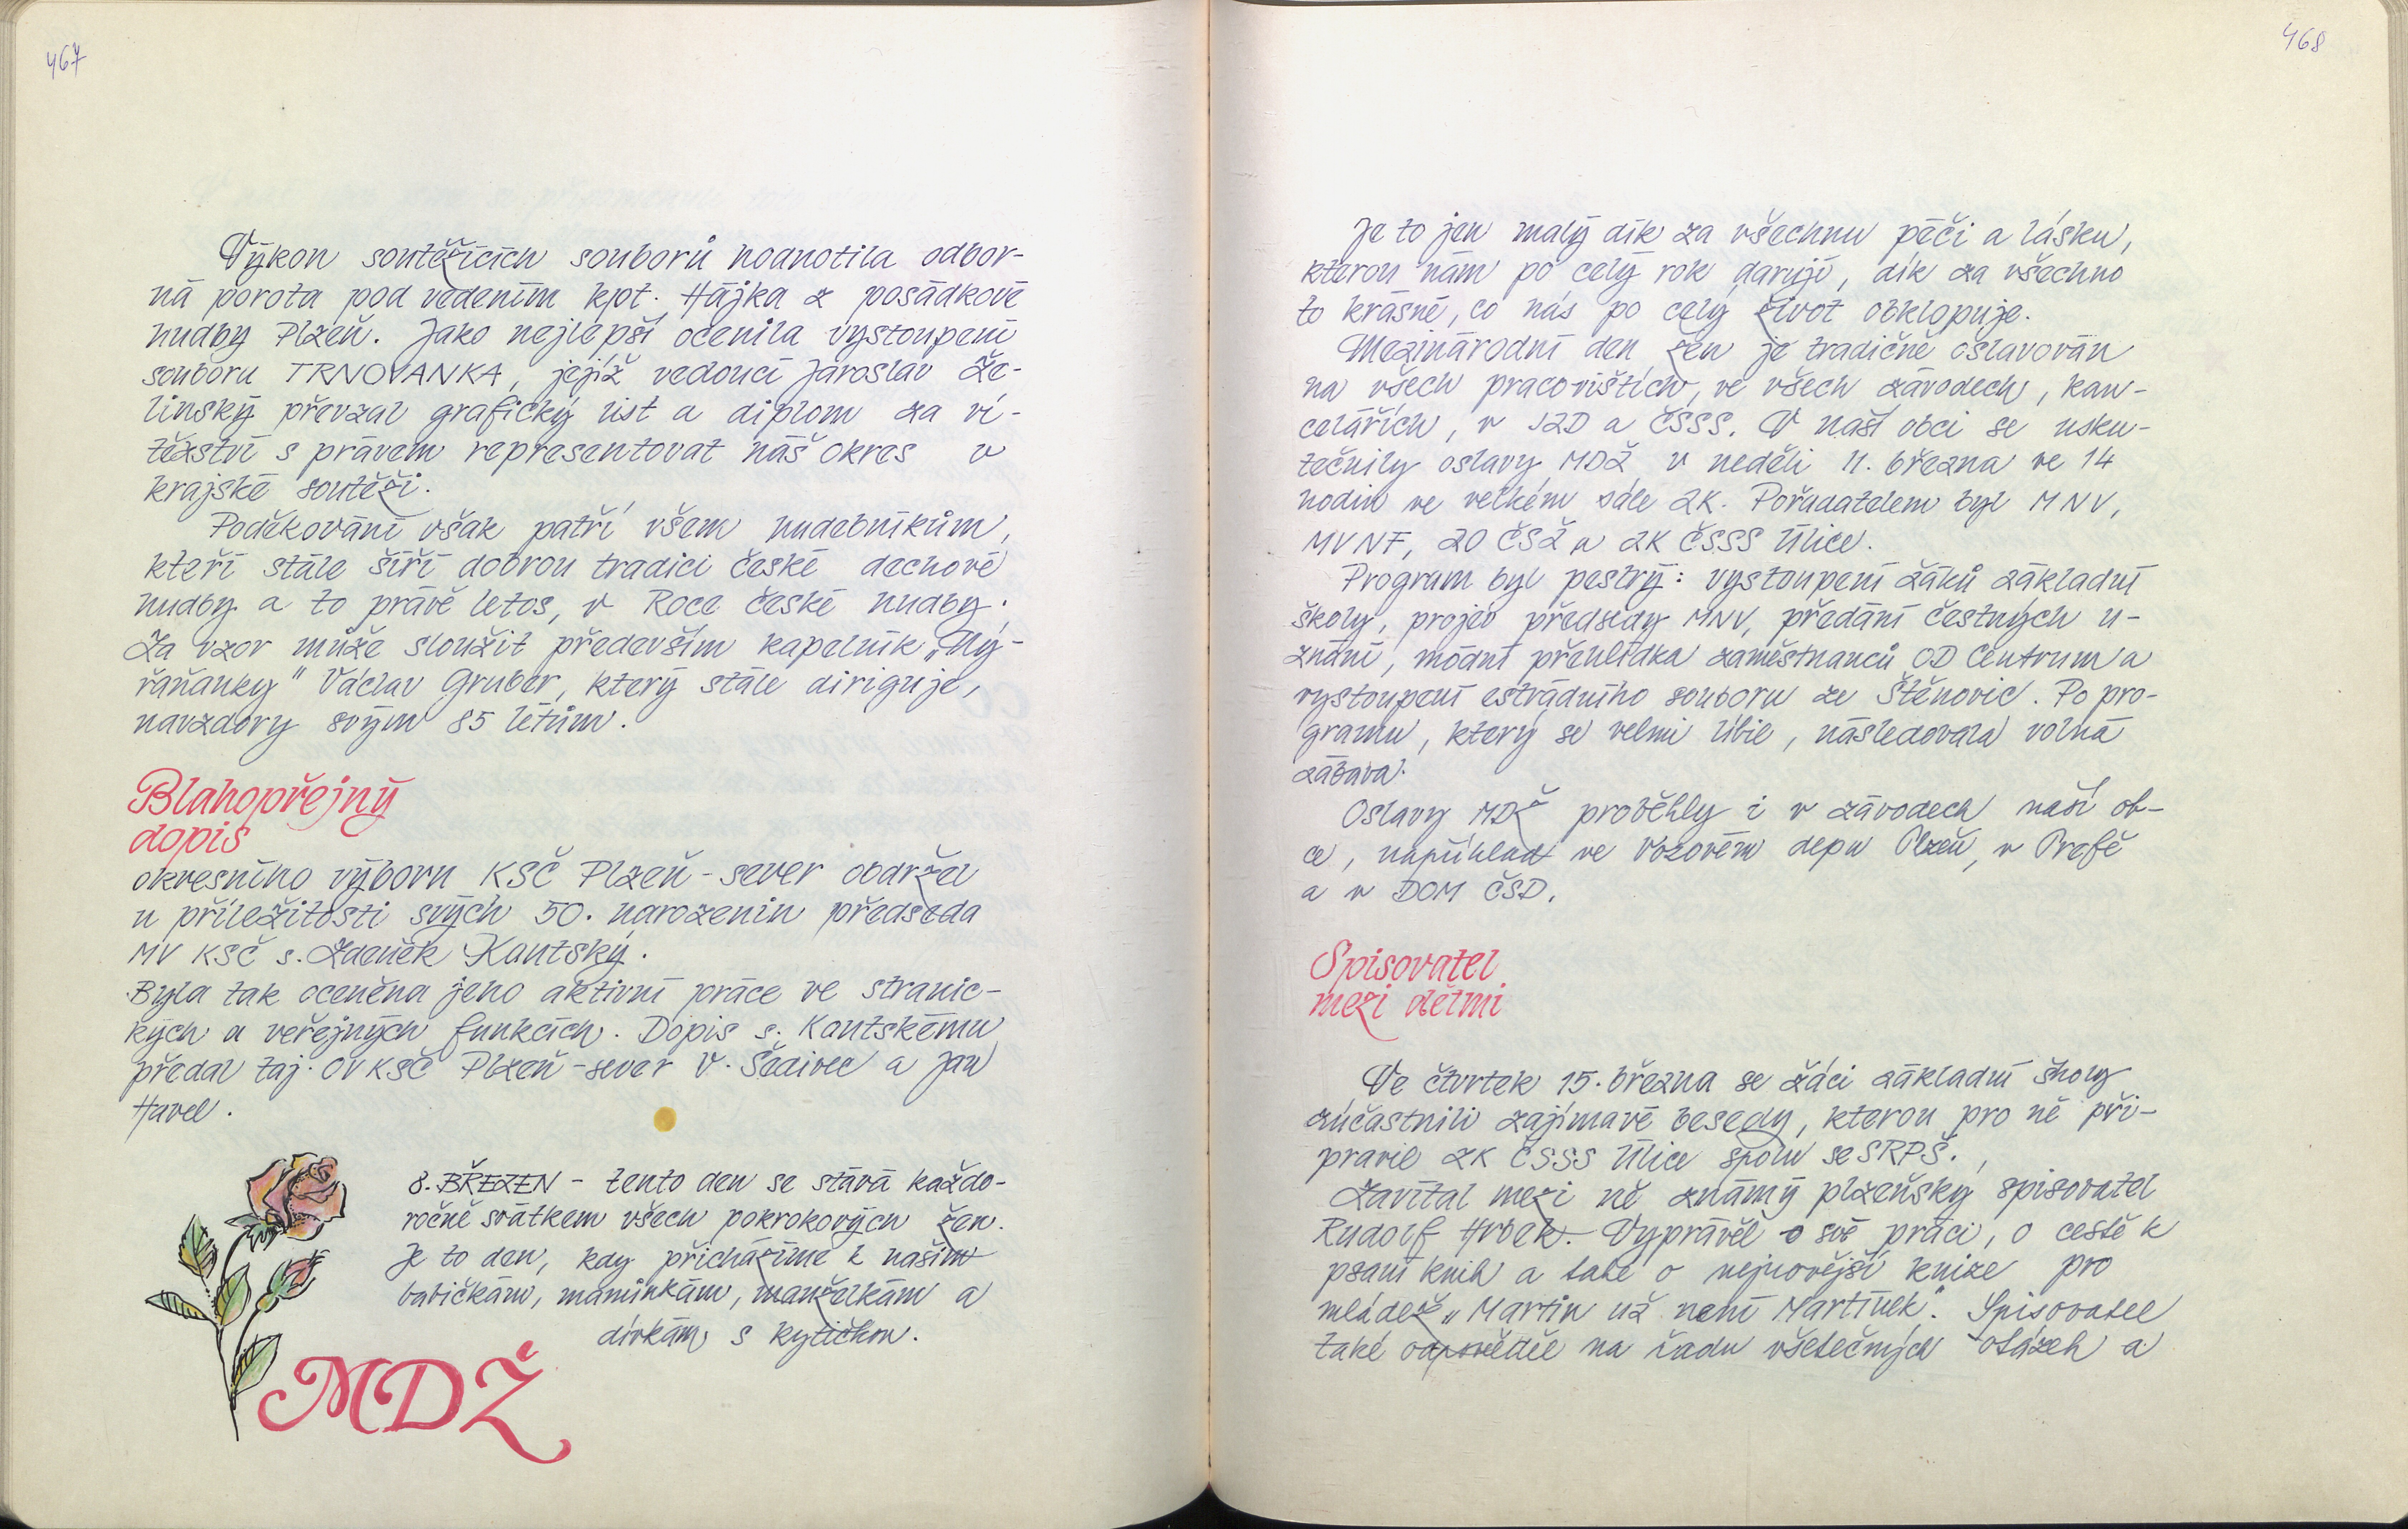 467
Výkon soutěžících souborů hodnotila odbor-
ná porota pod vedením kpt. Hájka z posádkové
hudby Plzeň. Jako nejlepší ocenila vystoupení
souboru TRNOVANKA, jejíž vedoucí Jaroslav Že-
linský převzal grafický list a diplom za ví-
tězství s právem representovat náš okres v
krajské soutěži.
Poděkování však patří všem hudebníkům,
kteří stále šíří dobrou tradici české dechové
hudby a to právě letos, v Roce české hudby.
Za vzor může sloužit především kapelník „Mý-
řaňanky" Václav Gruber, který stále diriguje,
navzdory svým 85 létům.
Blahopřejný
dopis
okresního výboru KSČ Plzeň-sever obdržel
u příležitosti svých 50. narozenin předseda
MV KSČ s. Zdeněk Kantský.
Byla tak oceněna jeho aktivní práce ve stranic-
kých a veřejných funkcích. Dopis s. Kantskému
předal taj. OV KSČ Plzeň-sever V. Šedivec a Jan
Havel.
8. BŘEZEN - tento den se stává každo-
ročně svátkem všech pokrokových žen.
Je to den, kdy přicházíme k našim
babičkám, maminkám, manželkám a
dívkám s kytičkou.
MDŽ
468
Je to jen malý dík za všechnu péči a lásku,
kterou nám po celý rok darují, dík za všechno
to krásné, co nás po celý život obklopuje.
Mezinárodní den žen je tradičně oslavován
na všech pracovištích, ve všech závodech, kan-
celářích, v JZD a ČSSS. V naší obci se usku-
tečnily oslavy MDŽ v neděli 11. března ve 14
hodin ve velkém sále ZK. Pořadatelem byl MNV,
MVNF, ZO ČSŽ a ZK ČSSS Úlice.
Program byl pestrý: vystoupení žáků základní
školy, projev předsedy MNV, předání čestných u-
znání, módní přehlídka zaměstnanců OD Centrum a
vystoupení estrádního souboru ze Štěnovic. Po pro-
gramu, který se velmi líbil, následovala volná
zábava.
Oslavy MDŽ proběhly i v závodech naší ob-
ce, například ve Vozovém depu Plzeň, v Prefě
a v DOM ČSD.
Spisovatel
mezi dětmi
Ve čtvrtek 15. března se žáci základní školy
zúčastnili zajímavé besedy, kterou pro ně při-
pravil ZK ČSSS Úlice spolu se SRPŠ.
Zavítal mezi ně známý plzeňský spisovatel
Rudolf Hrbek. Vyprávěl o své práci, o cestě k
psaní knih a také o nejnovější knize pro
mládež „Martin už není Martínek". Spisovatel
také odpověděl na řadu všetečných otázek a